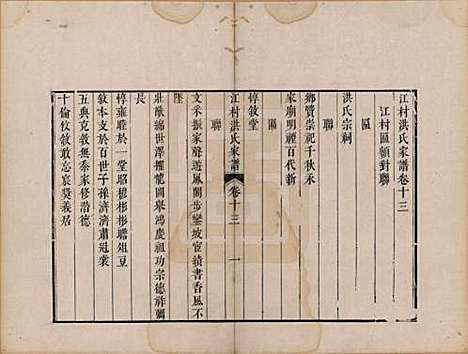 江村洪氏家譜卷十三
江村匾額對聯
匾
洪氏宗祠
鄉賢崇祀千秋永
家廟明禋百代新
匾
惇敘堂
江村洪氏家譜 卷十三 一
聯
文采振家聲遊鳳閣步鑾坡宦績書香風不
墜
壯猷綿世澤擢龍圖舉鴻慶祖功宗德祥彌
長
惇雍睦於一堂昭穆彬彬瞻俎豆
敘本支於百世子孫濟濟肅冠裳
五典克敦無忝家修潛德
十倫攸敘敢忘宸袞義居